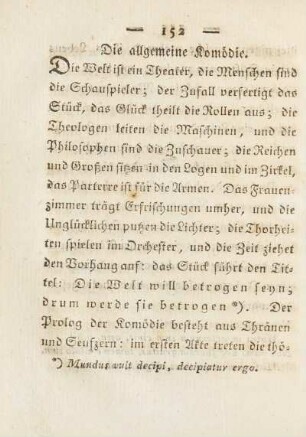 — 152 —
Die allgemeine Komödie.
Die Welt ist ein Theater, die Menschen sind
die Schauspieler; der Zufall verfertigt das
Stück, das Glück theilt die Rollen aus; die
Theologen leiten die Maschinen, und die
Philosophen sind die Zuschauer; die Reichen
und Großen sitzen in den Logen und im Zirkel,
das Parterre ist für die Armen. Das Frauen-
zimmer trägt Erfrischungen umher, und die
Unglücklichen putzen die Lichter; die Thorhei-
ten spielen im Orchester, und die Zeit ziehet
den Vorhang auf: das Stück führt den Tit-
tel: Die Welt will betrogen seyn;
drum werde sie betrogen *). Der
Prolog der Komödie besteht aus Thränen
und Seufzern: im ersten Akte treten die thö-
*) Mundus vult decipi, decipiatur ergo.